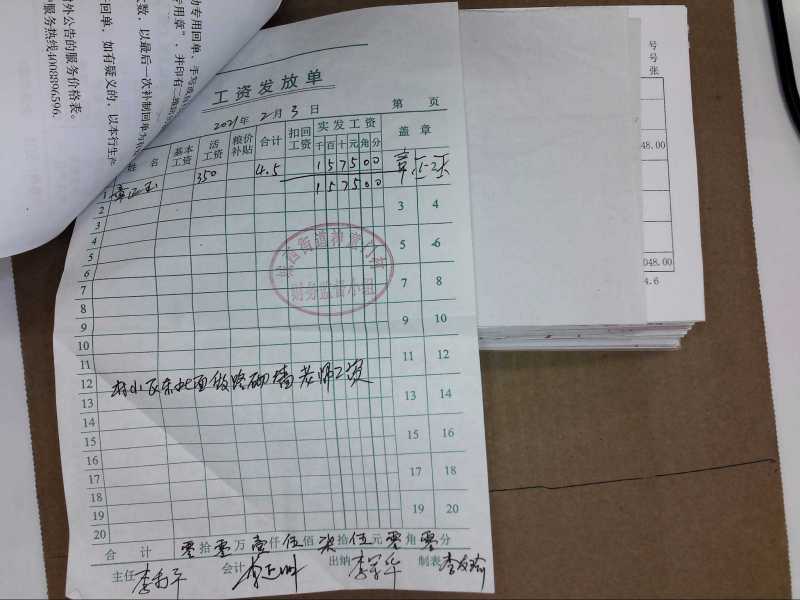 动专用回单、手写或
专用章”，并印有二维
次数，以最后一次补制回单为
回单，如有疑义的，以本行生产
对外公告的服务价格表。
服务热线4008896596.
工资发放单
2021年 2月 3日
第 页
姓 名 基本工资 活工资 粮价补贴 合计 扣回工资 实发工资 盖章
千 百 十 元 角 分
1 章正玉 350 4.5 1 5 7 5 0 0 章正玉
2 1 5 7 5 0 0
3 3 4
4
5 5 6
6
7 7 8
8
9 9 10
10
11 11 12
12 村小区东北面做路砌墙老师工资
13 13 14
14
15 15 16
16
17 17 18
18
19 19 20
20
财务监督小组
合 计 零拾零万壹仟伍佰柒拾伍元零角零分
主任 会计 出纳 李军华 制表
号
号
张
48.00
048.00
4.6